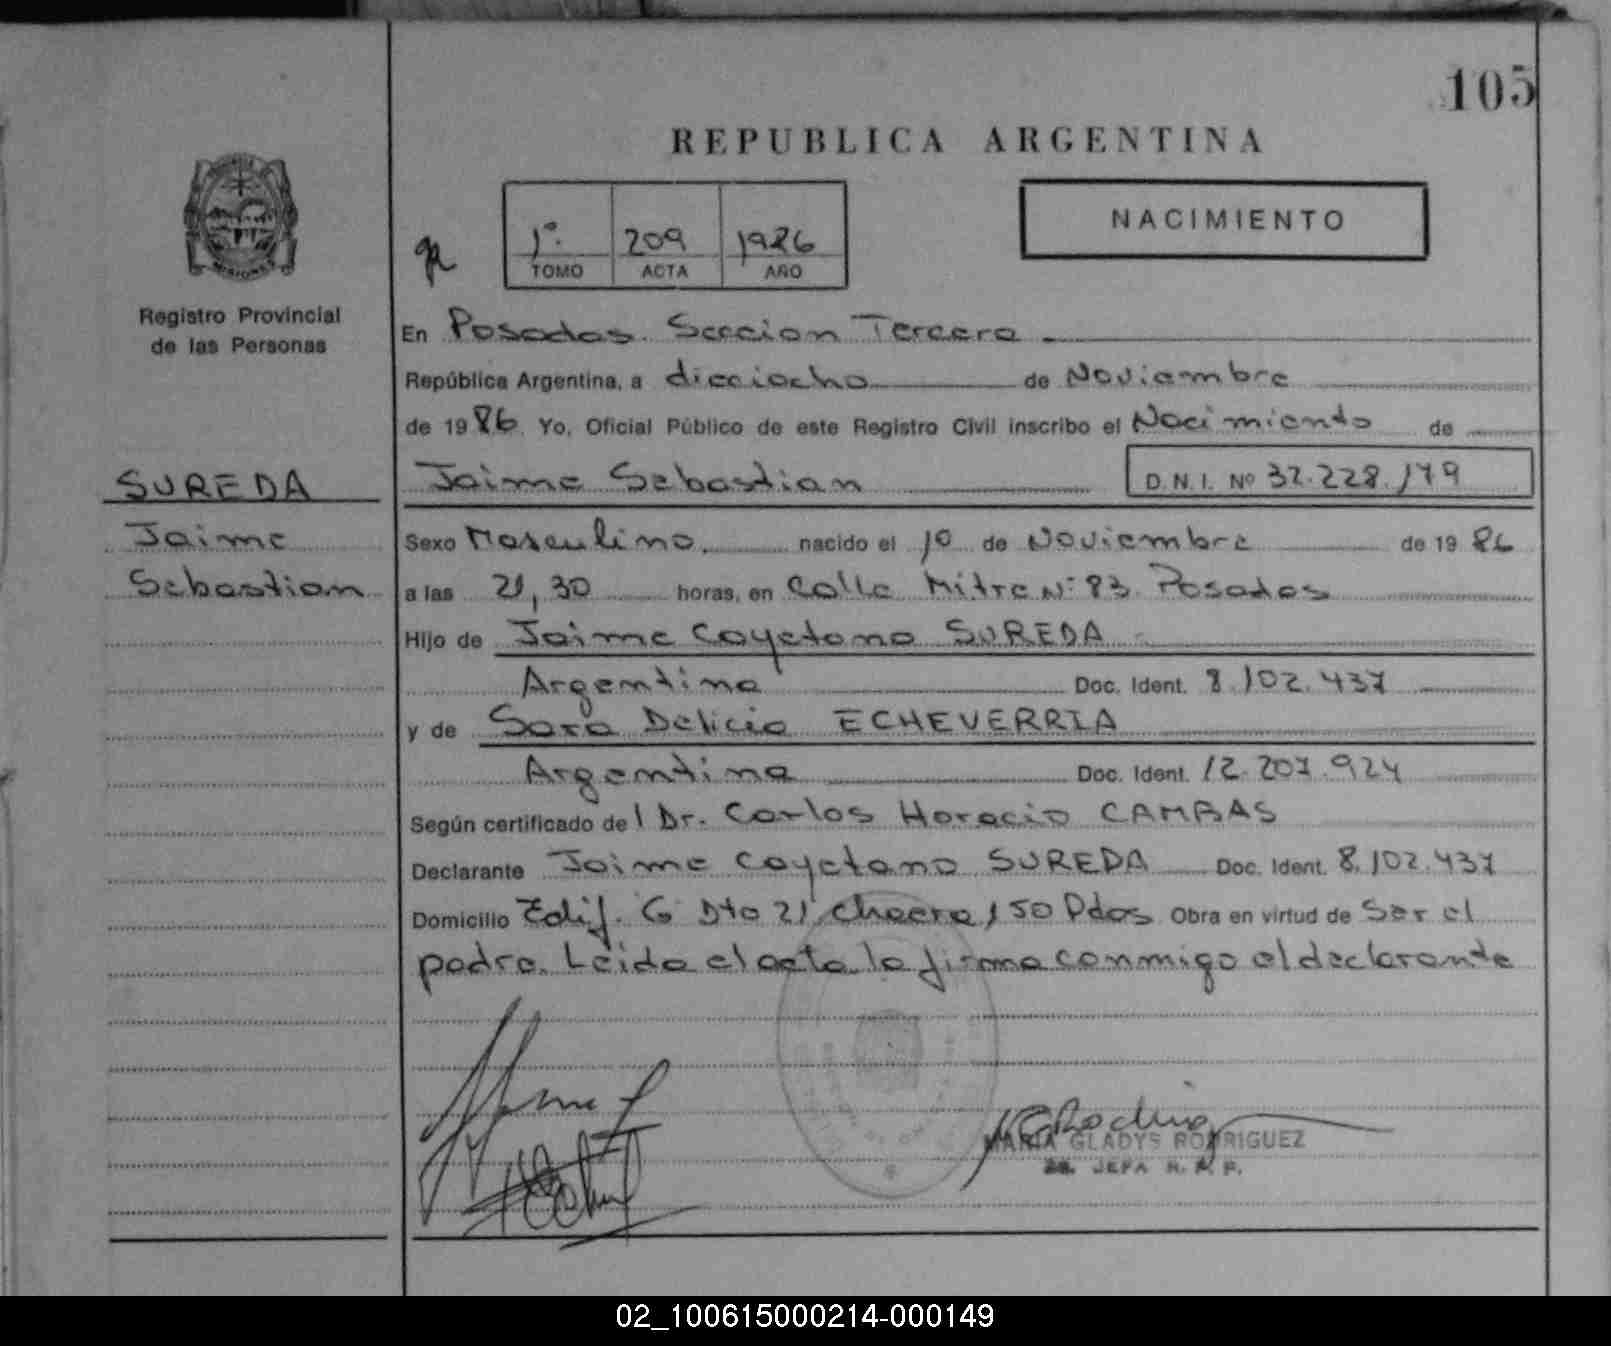 105
REPUBLICA ARGENTINA
1º. 209 1986
TOMO ACTA AÑO
NACIMIENTO
MISIONES
Registro Provincial
de las Personas
En Posadas. Seccion Tercera
República Argentina, a dieciocho de Noviembre
de 1986. Yo, Oficial Público de este Registro Civil inscribo el Nacimiento de
SUREDA
Jaime Sebastian D.N.I. Nº 32.228.179
Jaime
Sexo Masculino. nacido el 10 de Noviembre de 1986
Sebastian
a las 21,30 horas, en Calle Mitre Nº 83. Posadas
Hijo de Jaime Cayetano SUREDA
Argentina Doc. Ident. 8.102.437
y de Sara Delicia ECHEVERRIA
Argentina Doc. Ident. 12.207.924
Según certificado del Dr. Carlos Horacio CAMBAS
Declarante Jaime Cayetano SUREDA Doc. Ident. 8.102.437
Domicilio Edif. G Dto 21 chacra 150 Pdas. Obra en virtud de Ser el
padre. Leida el acta la firma conmigo el declarante
MARIA GLADYS RODRIGUEZ
JEFA R. P. P.
02_100615000214-000149